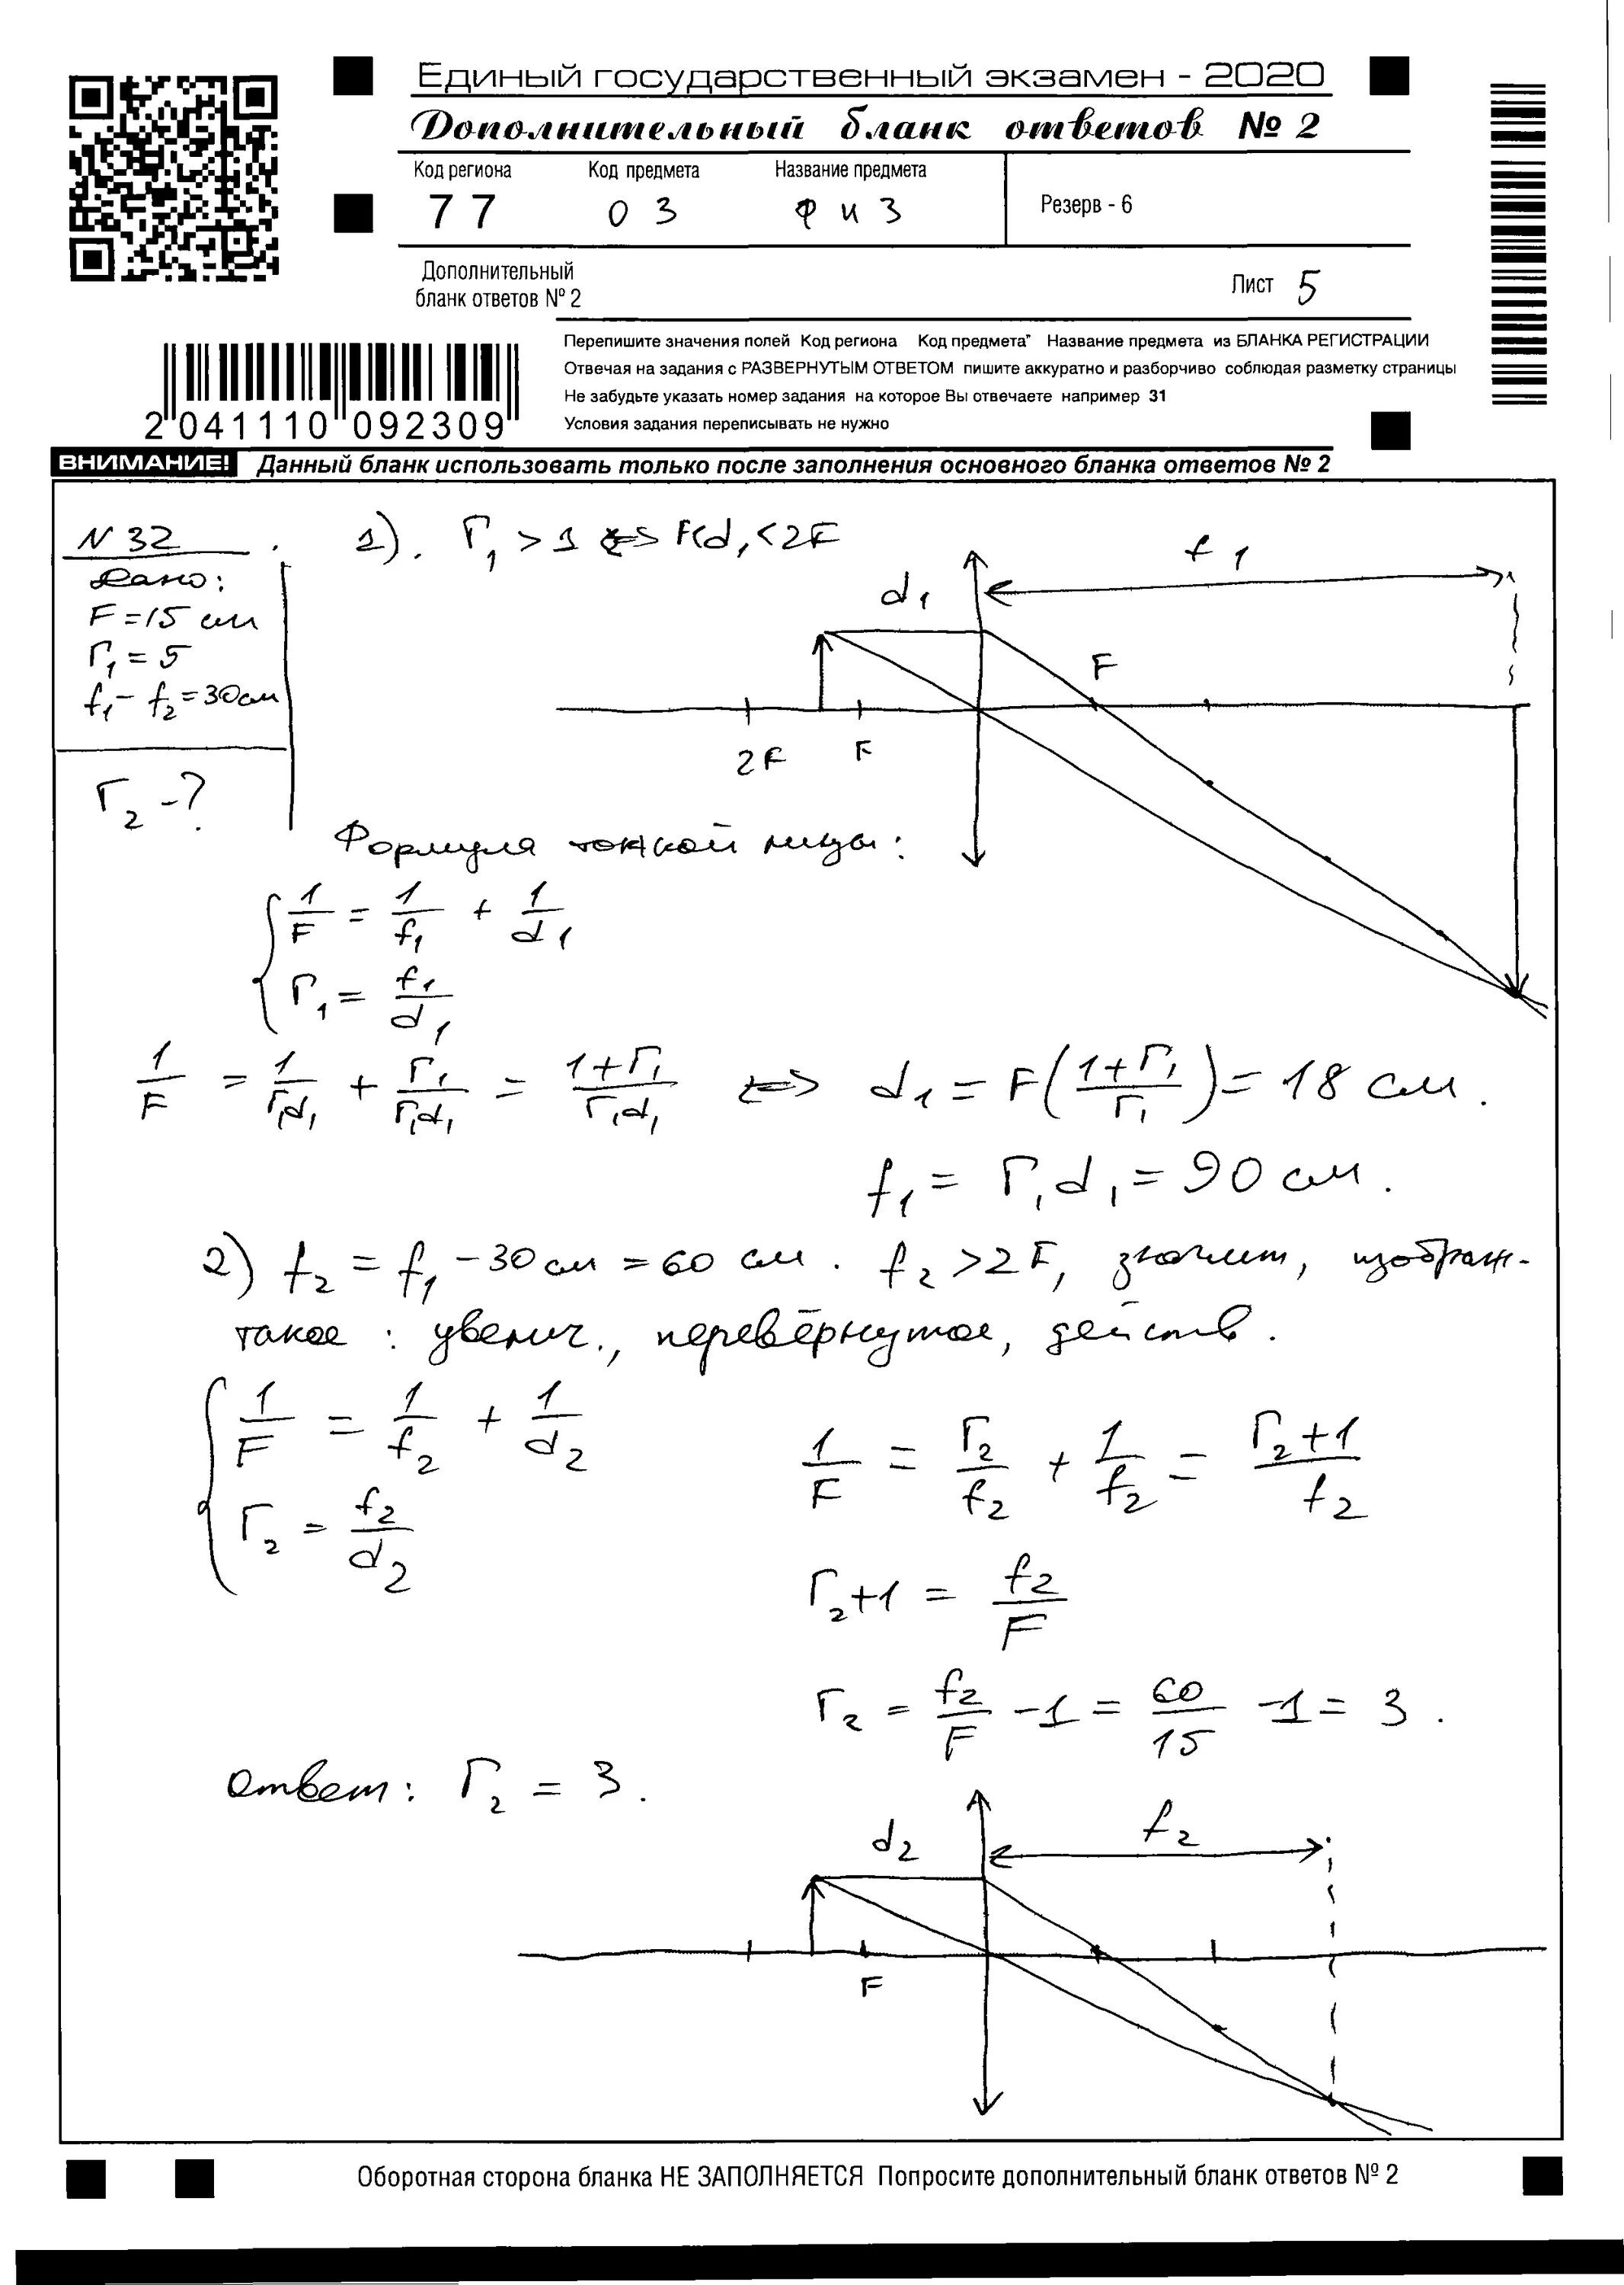 Единый государственный экзамен - 2020
Дополнительный бланк ответов № 2
Код региона Код предмета Название предмета
77 03 ФИЗ
Резерв - 6
Дополнительный
бланк ответов № 2
Лист 5
Перепишите значения полей Код региона Код предмета" Название предмета из БЛАНКА РЕГИСТРАЦИИ
Отвечая на задания с РАЗВЕРНУТЫМ ОТВЕТОМ пишите аккуратно и разборчиво соблюдая разметку страницы
Не забудьте указать номер задания на которое Вы отвечаете например 31
Условия задания переписывать не нужно
2 041110 092309
ВНИМАНИЕ! Данный бланк использовать только после заполнения основного бланка ответов № 2
N 32
Дано:
F = 15 см
Г₁ = 5
f₁ - f₂ = 30 см
Г₂ -?
1). Г₁ > 1 <=> F<d₁<2F
f₁
d₁
F
2F F
Формула тонкой линзы:
1/F = 1/f₁ + 1/d₁
Г₁ = f₁/d₁
1/F = 1/Г₁d₁ + Г₁/Г₁d₁ = 1+Г₁/Г₁d₁ <=> d₁ = F(1+Г₁/Г₁) = 18 см.
f₁ = Г₁d₁ = 90 см.
2) f₂ = f₁ - 30 см = 60 см. f₂ > 2F, значит, изображ-
такое: увелич., перевёрнутое, действ.
1/F = 1/f₂ + 1/d₂
Г₂ = f₂/d₂
1/F = Г₂/f₂ + 1/f₂ = Г₂+1/f₂
Г₂+1 = f₂/F
Г₂ = f₂/F - 1 = 60/15 - 1 = 3.
Ответ: Г₂ = 3.
d₂
f₂
F
Оборотная сторона бланка НЕ ЗАПОЛНЯЕТСЯ Попросите дополнительный бланк ответов № 2